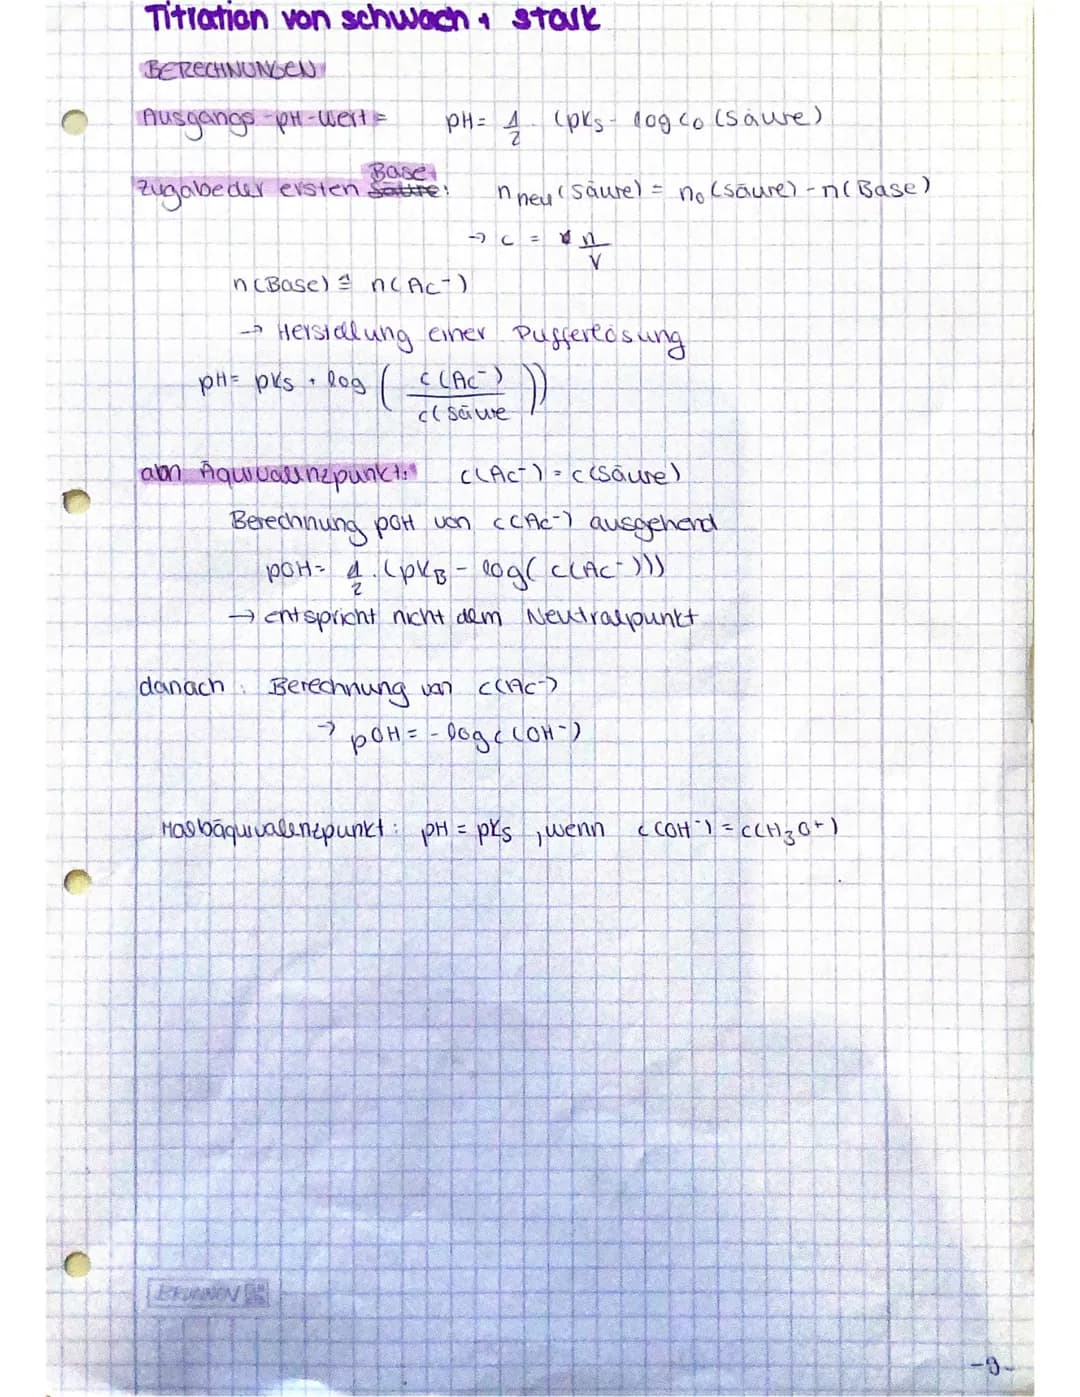 Titration von schwach + stark
BERECHNUNGEN
Ausgangs-pH-Wert = pH = 1/2 · (pKs - log c0 (Säure)
Zugabe der ersten Säure Base: n neu (Säure) = n0 (Säure) - n(Base)
→ c = n/V
n(Base) ≙ n(Ac-)
→ Herstellung einer Pufferlösung
pH = pKs + log ( c(Ac-) / c(Säure ))
am Äquivalenzpunkt: c(Ac-) = c(Säure)
Berechnung pOH von c(Ac-) ausgehend
pOH = 1/2 · (pKB - log( c(Ac-)))
→ entspricht nicht dem Neutralpunkt
danach: Berechnung von c(Ac-)
→ pOH = - log c (OH-)
Halbäquivalenzpunkt: pH = pKs, wenn c(OH-) = c(H3O+)
BRUNNEN
-9-